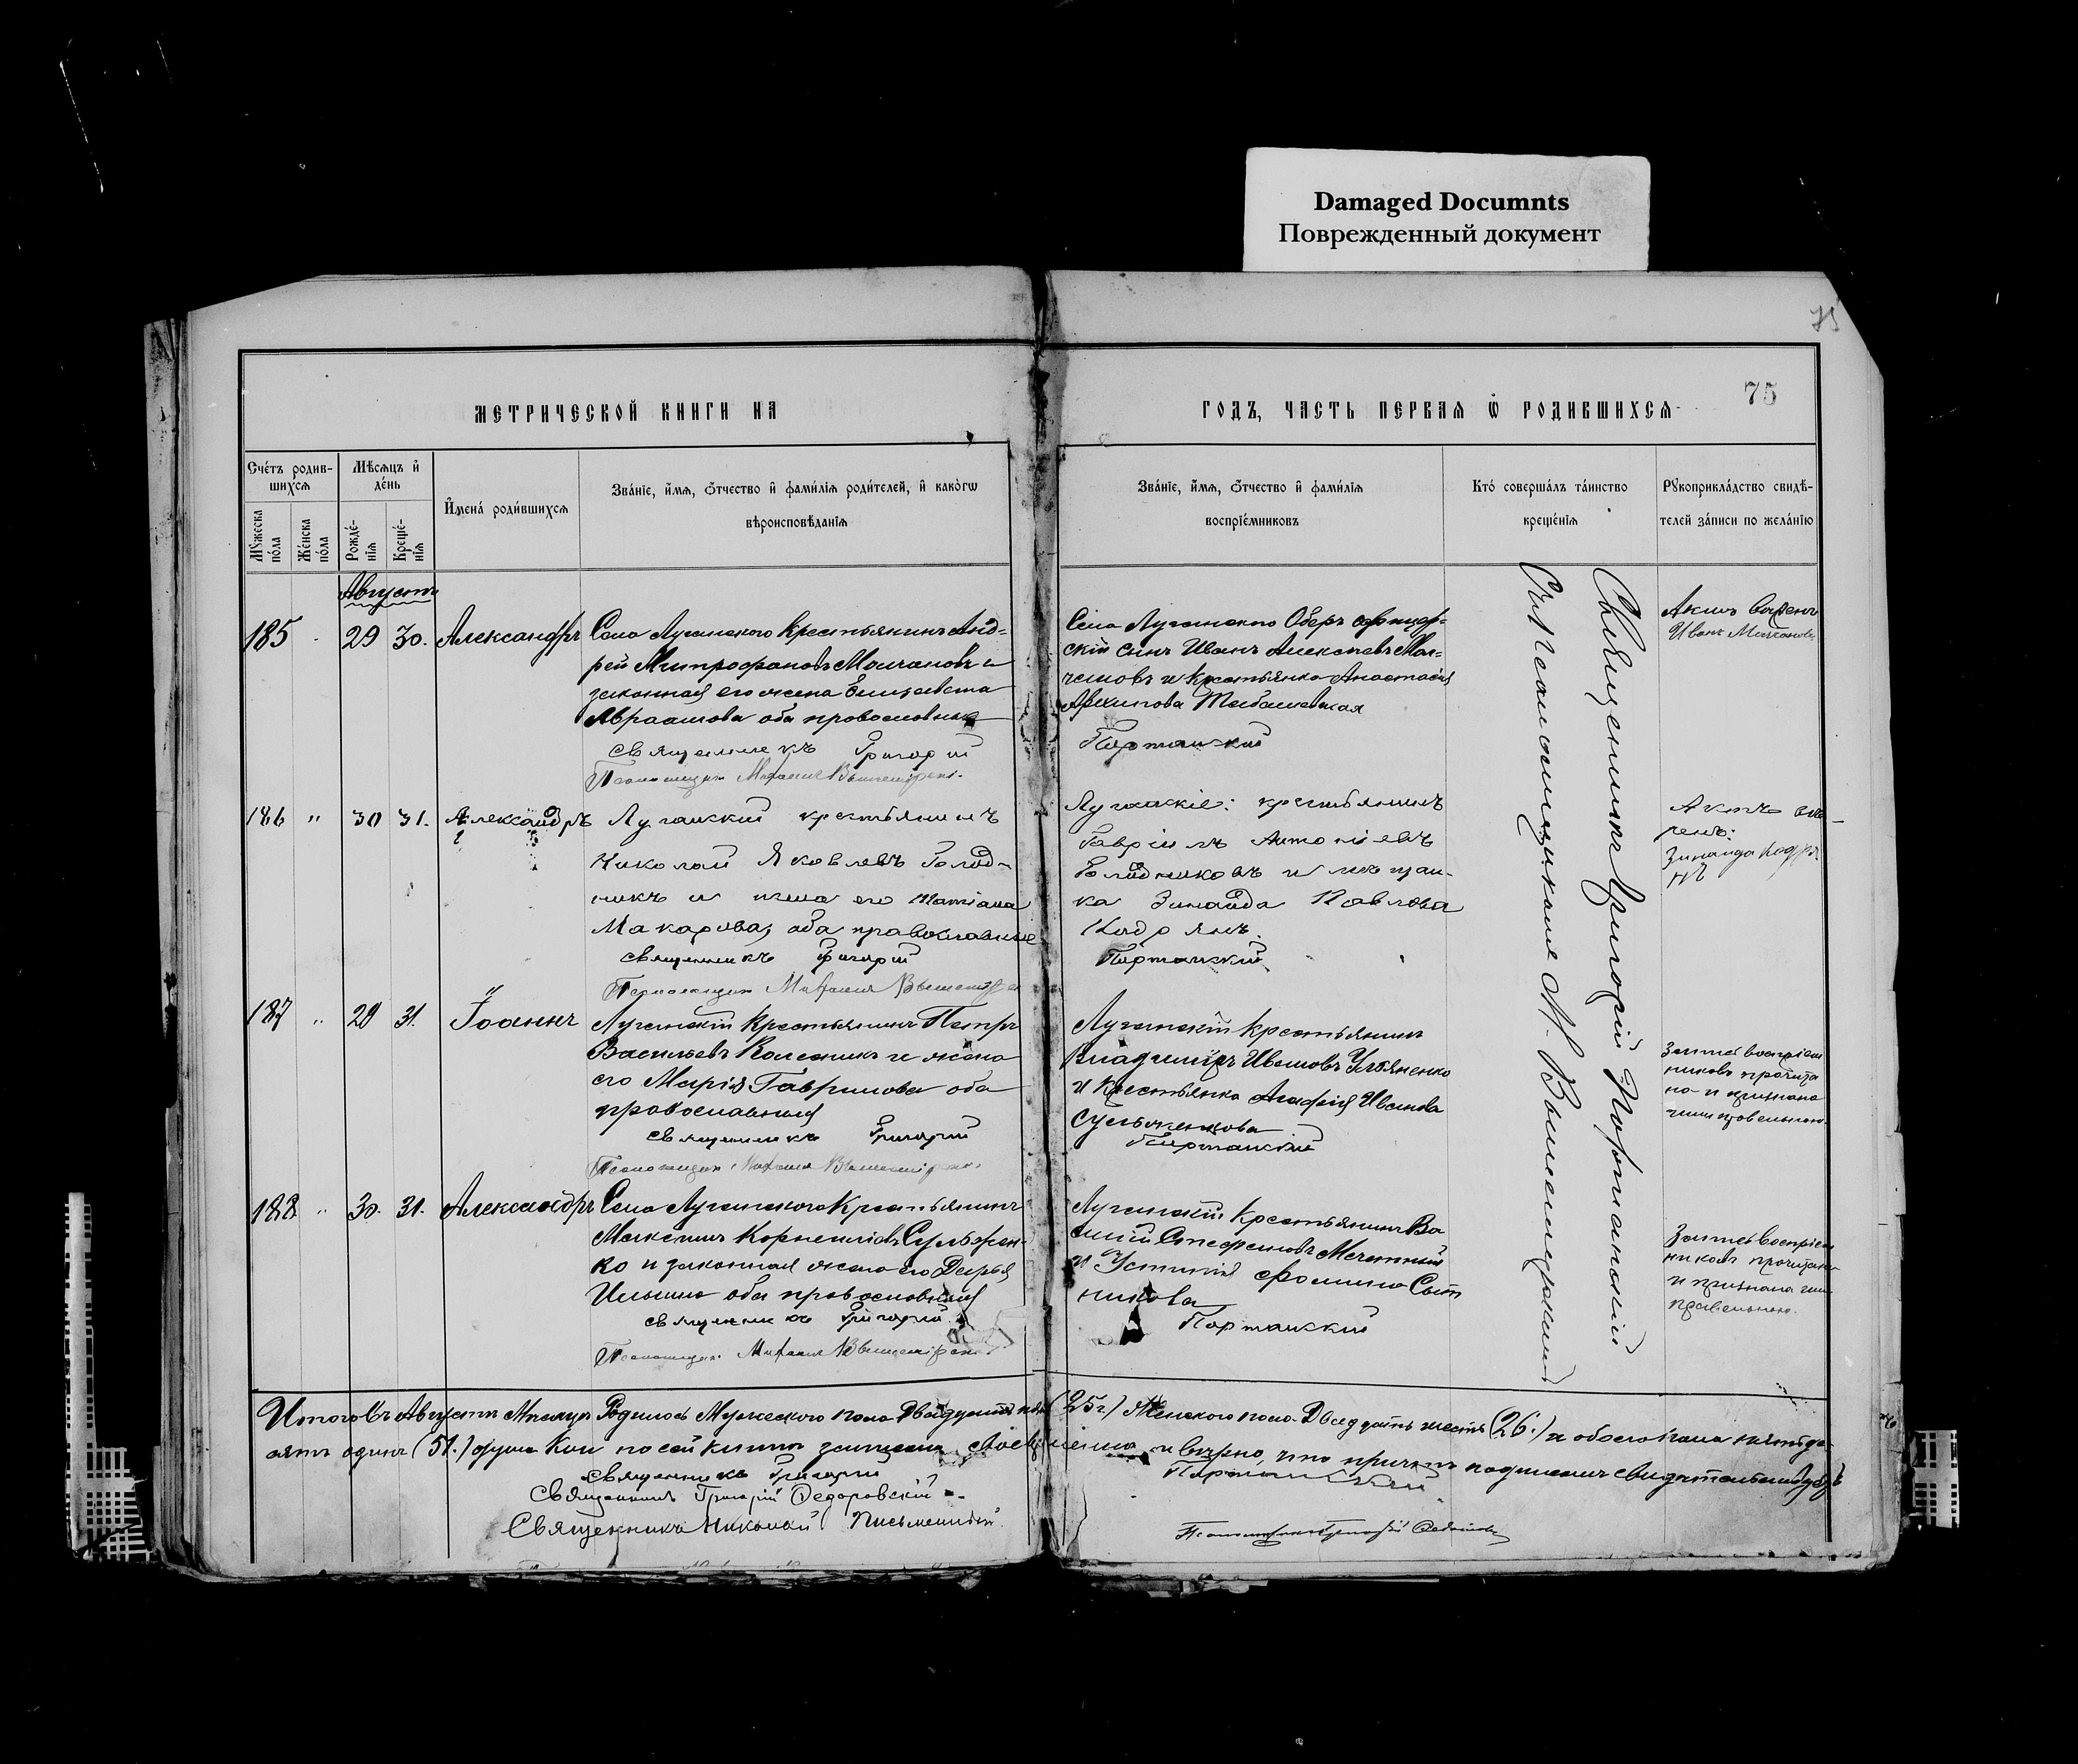 Damaged Documnts
Поврежденный документ
75
75
МЕТРИЧЕСКОЙ КНИГИ НА
ГОДЪ, ЧАСТЬ ПЕРВАЯ Ѡ РОДИВШИХСЯ
Счетъ родив-
шихся
Мужеска
пола
Женска
пола
Мѣсяцъ и
день
Рожде-
нія
Креще-
нія
Имена родившихся
Званіе, имя, отчество и фамилія родителей, и какогѡ
вѣроисповѣданія
Званіе, имя, отчество и фамилія
воспріемниковъ
Кто совершалъ таинство
крещенія
Рукоприкладство свидѣ-
телей записи по желанію
Августъ
185 29 30. Александръ
Села Луганского Крестьянинъ Анд-
рей Митрофановъ Молчановъ и
законная его жена Елисавета
Авраамова оба православные
Священникъ Григорій
Псаломщикъ Михаилъ
Села Луганского Оберъ офицер-
скій сынъ Иванъ Алексѣевъ Мол-
чановъ и Крестьянка Анастасія
Архипова
Портанскій
Актъ
Иванъ Молчановъ
186 " 30 31. Александръ
Луганскій крестьянинъ
Николай Яковлевъ Голод-
никъ и жена его Татіана
Макарова, оба православные
священникъ Григорій
Псаломщикъ Михаилъ
Луганскіе: крестьянинъ
Гавріилъ Антоніевъ
Голодниковъ и мѣщан-
ка Зинаида Павлова
Кодрянъ.
Портанскій
Актъ вѣ-
ренъ:
Зинаида Кодря
нъ
187 " 29 31. Іоаннъ
Луганскій Крестьянинъ Петръ
Васильевъ Колесникъ и жена
его Марія Гаврилова оба
православные
священникъ Григорій
Псаломщикъ Михаилъ
Луганскій крестьянинъ
Владиміръ Ивановъ Ульяненко
и Крестьянка Агафія Иванова
Портанскій
Запись воспріем
никовъ прочита
на и признана
ими правельною.
188 " 30. 31. Александръ
Села Луганского Крестьянинъ
Максимъ Корнеиліевъ
и законная жена его Дарья
Ильина оба православные
священникъ Григорій
Псаломщикъ Михаилъ
Луганскій Крестьянинъ Ва
силій Стефановъ
и Устинія Фомина Сыт
никова
Портанскій
Запись воспріем
никовъ прочитана
и признана ими
правельною.
Священникъ Григорій Портанскій
съ Псаломщикомъ М.
Итого въ Августѣ Мѣсяцѣ Родилось Мужеского пола Двадцать пять (25.) Женского пола Двадцать шесть (26.) и обоего пола пятьде-
сятъ одинъ (51.) душа Кои по сей книгѣ записаны и вѣрно, что причтъ подписомъ свидѣтельствуетъ
Священникъ Григорій Портанскій
Священникъ Григорій Ѳедоровскій
Священникъ Николай Письменный